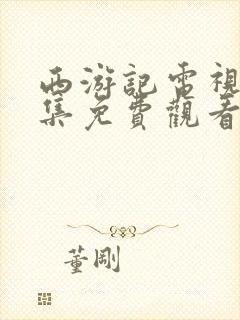 西游記電視
集免費觀看
董剛